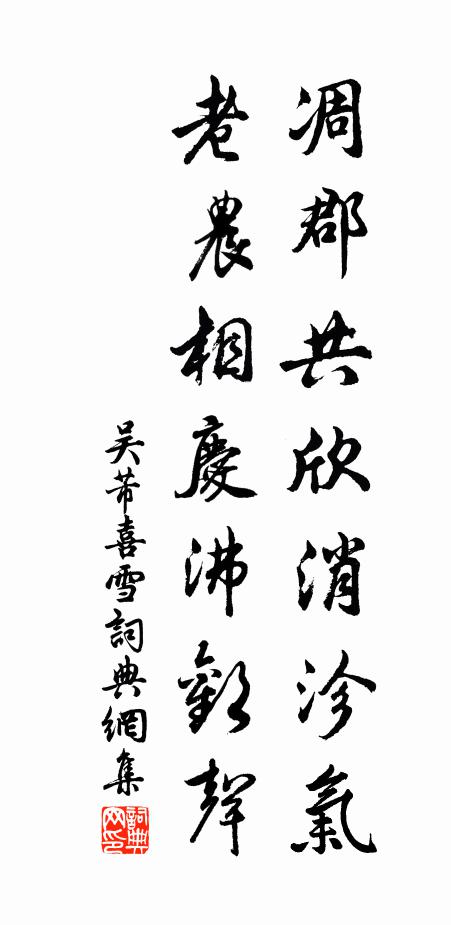 凋郡共欣消沴氣
老農相慶沸歡聲
吳芾喜雪詞典網集
詞典網印